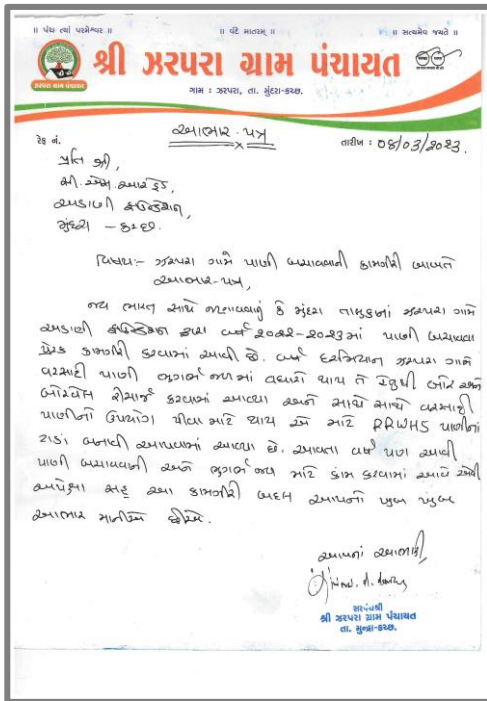 ॥ પંચ ત્યાં પરમેશ્વર ॥ ॥ વંદે માતરમ્ ॥ ॥ સત્યમેવ જયતે ॥
શ્રી ઝરપરા ગ્રામ પંચાયત
ઝરપરા ગ્રામ પંચાયત
ગામ : ઝરપરા, તા. મુંદરા-કચ્છ.
આભાર-પત્ર
રેફ નં. તારીખ : 04/03/2023.
પ્રતિ શ્રી,
સી.એસ.આર હેડ,
અદાણી ફાઉન્ડેશન,
મુંદરા - કચ્છ.
વિષય:- ઝરપરા ગામે પાણી બચાવવાની કામગીરી બાબતે
આભાર-પત્ર,
જય ભારત સાથે જણાવવાનું કે મુંદરા તાલુકાનાં ઝરપરા ગામે
અદાણી ફાઉન્ડેશન દ્વારા વર્ષ 2022-2023માં પાણી બચાવવા
પ્રેરક કામગીરી કરવામાં આવી છે. વર્ષ દરમિયાન ઝરપરા ગામે
વરસાદી પાણી ભૂગર્ભ જળમાં વધારો થાય તે હેતુથી બોર અને
બોરવેલ રીચાર્જ કરવામાં આવ્યા અને સાથે સાથે વરસાદી
પાણીનો ઉપયોગ પીવા માટે થાય એ માટે RRWHS પાણીનાં
ટાંકા બનાવી આપવામાં આવ્યા છે. આવતા વર્ષ પણ આવી
પાણી બચાવવાની અને ભૂગર્ભ જળ માટે કામ કરવામાં આવે એવી
અપેક્ષા સહ આ કામગીરી બદલ આપનો ખુબ ખુબ
આભાર માનીએ છીએ.
આપનાં આભારી,
સરપંચશ્રી
શ્રી ઝરપરા ગ્રામ પંચાયત
તા. મુન્દ્રા-કચ્છ.